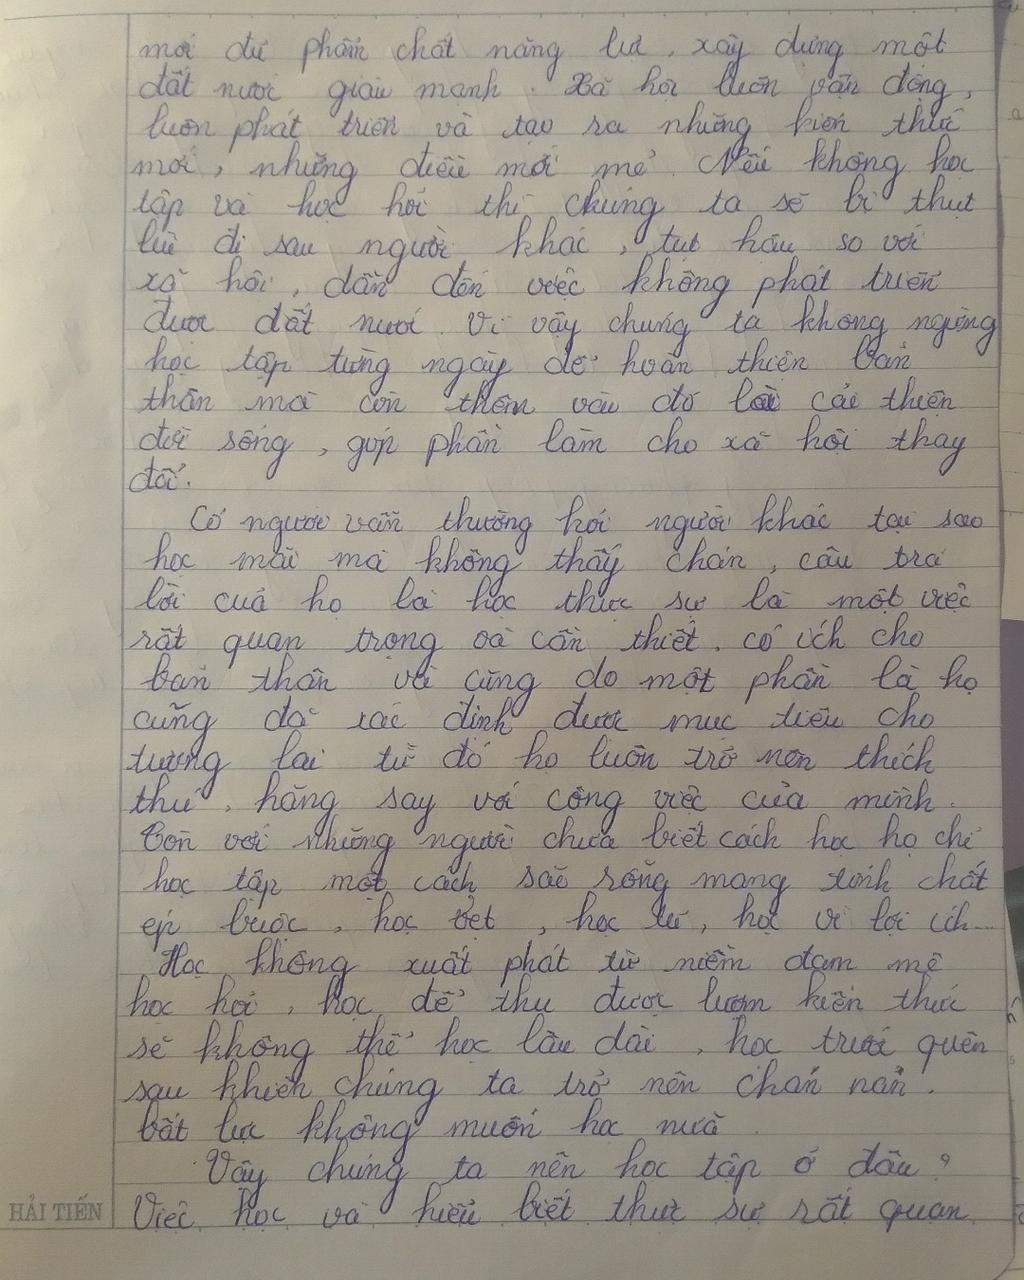 mới đủ phẩm chất năng lực, xây dựng một
đất nước giàu mạnh. Xã hội luôn vận động,
luôn phát triển và tạo ra những kiến thức
mới, những điều mới mẻ. Nếu không học
tập và học hỏi thì chúng ta sẽ bị thụt
lùi đi sau người khác, tụt hậu so với
xã hội, dẫn đến việc không phát triển
được đất nước. Vì vậy chúng ta không ngừng
học tập từng ngày để hoàn thiện bản
thân mà còn thêm vào đó là cải thiện
đời sống, góp phần làm cho xã hội thay
đổi.
Có người vẫn thường hỏi người khác tại sao
học mãi mà không thấy chán, câu trả
lời của họ là học thực sự là một việc
rất quan trọng và cần thiết, có ích cho
bản thân và cũng do một phần là họ
cũng đã xác định được mục tiêu cho
tương lai từ đó họ luôn trở nên thích
thú, hăng say với công việc của mình.
Còn với những người chưa biết cách học họ chỉ
học tập một cách sáo rỗng mang tính chất
ép buộc, học vẹt, học tủ, học vì lợi ích...
Học không xuất phát từ niềm đam mê
học hỏi, học để thu được lượm kiến thức
sẽ không thể học lâu dài, học trước quên
sau khiến chúng ta trở nên chán nản,
bất lực không muốn học nữa.
Vậy chúng ta nên học tập ở đâu?
Việc học và hiểu biết thực sự rất quan
HẢI TIẾN